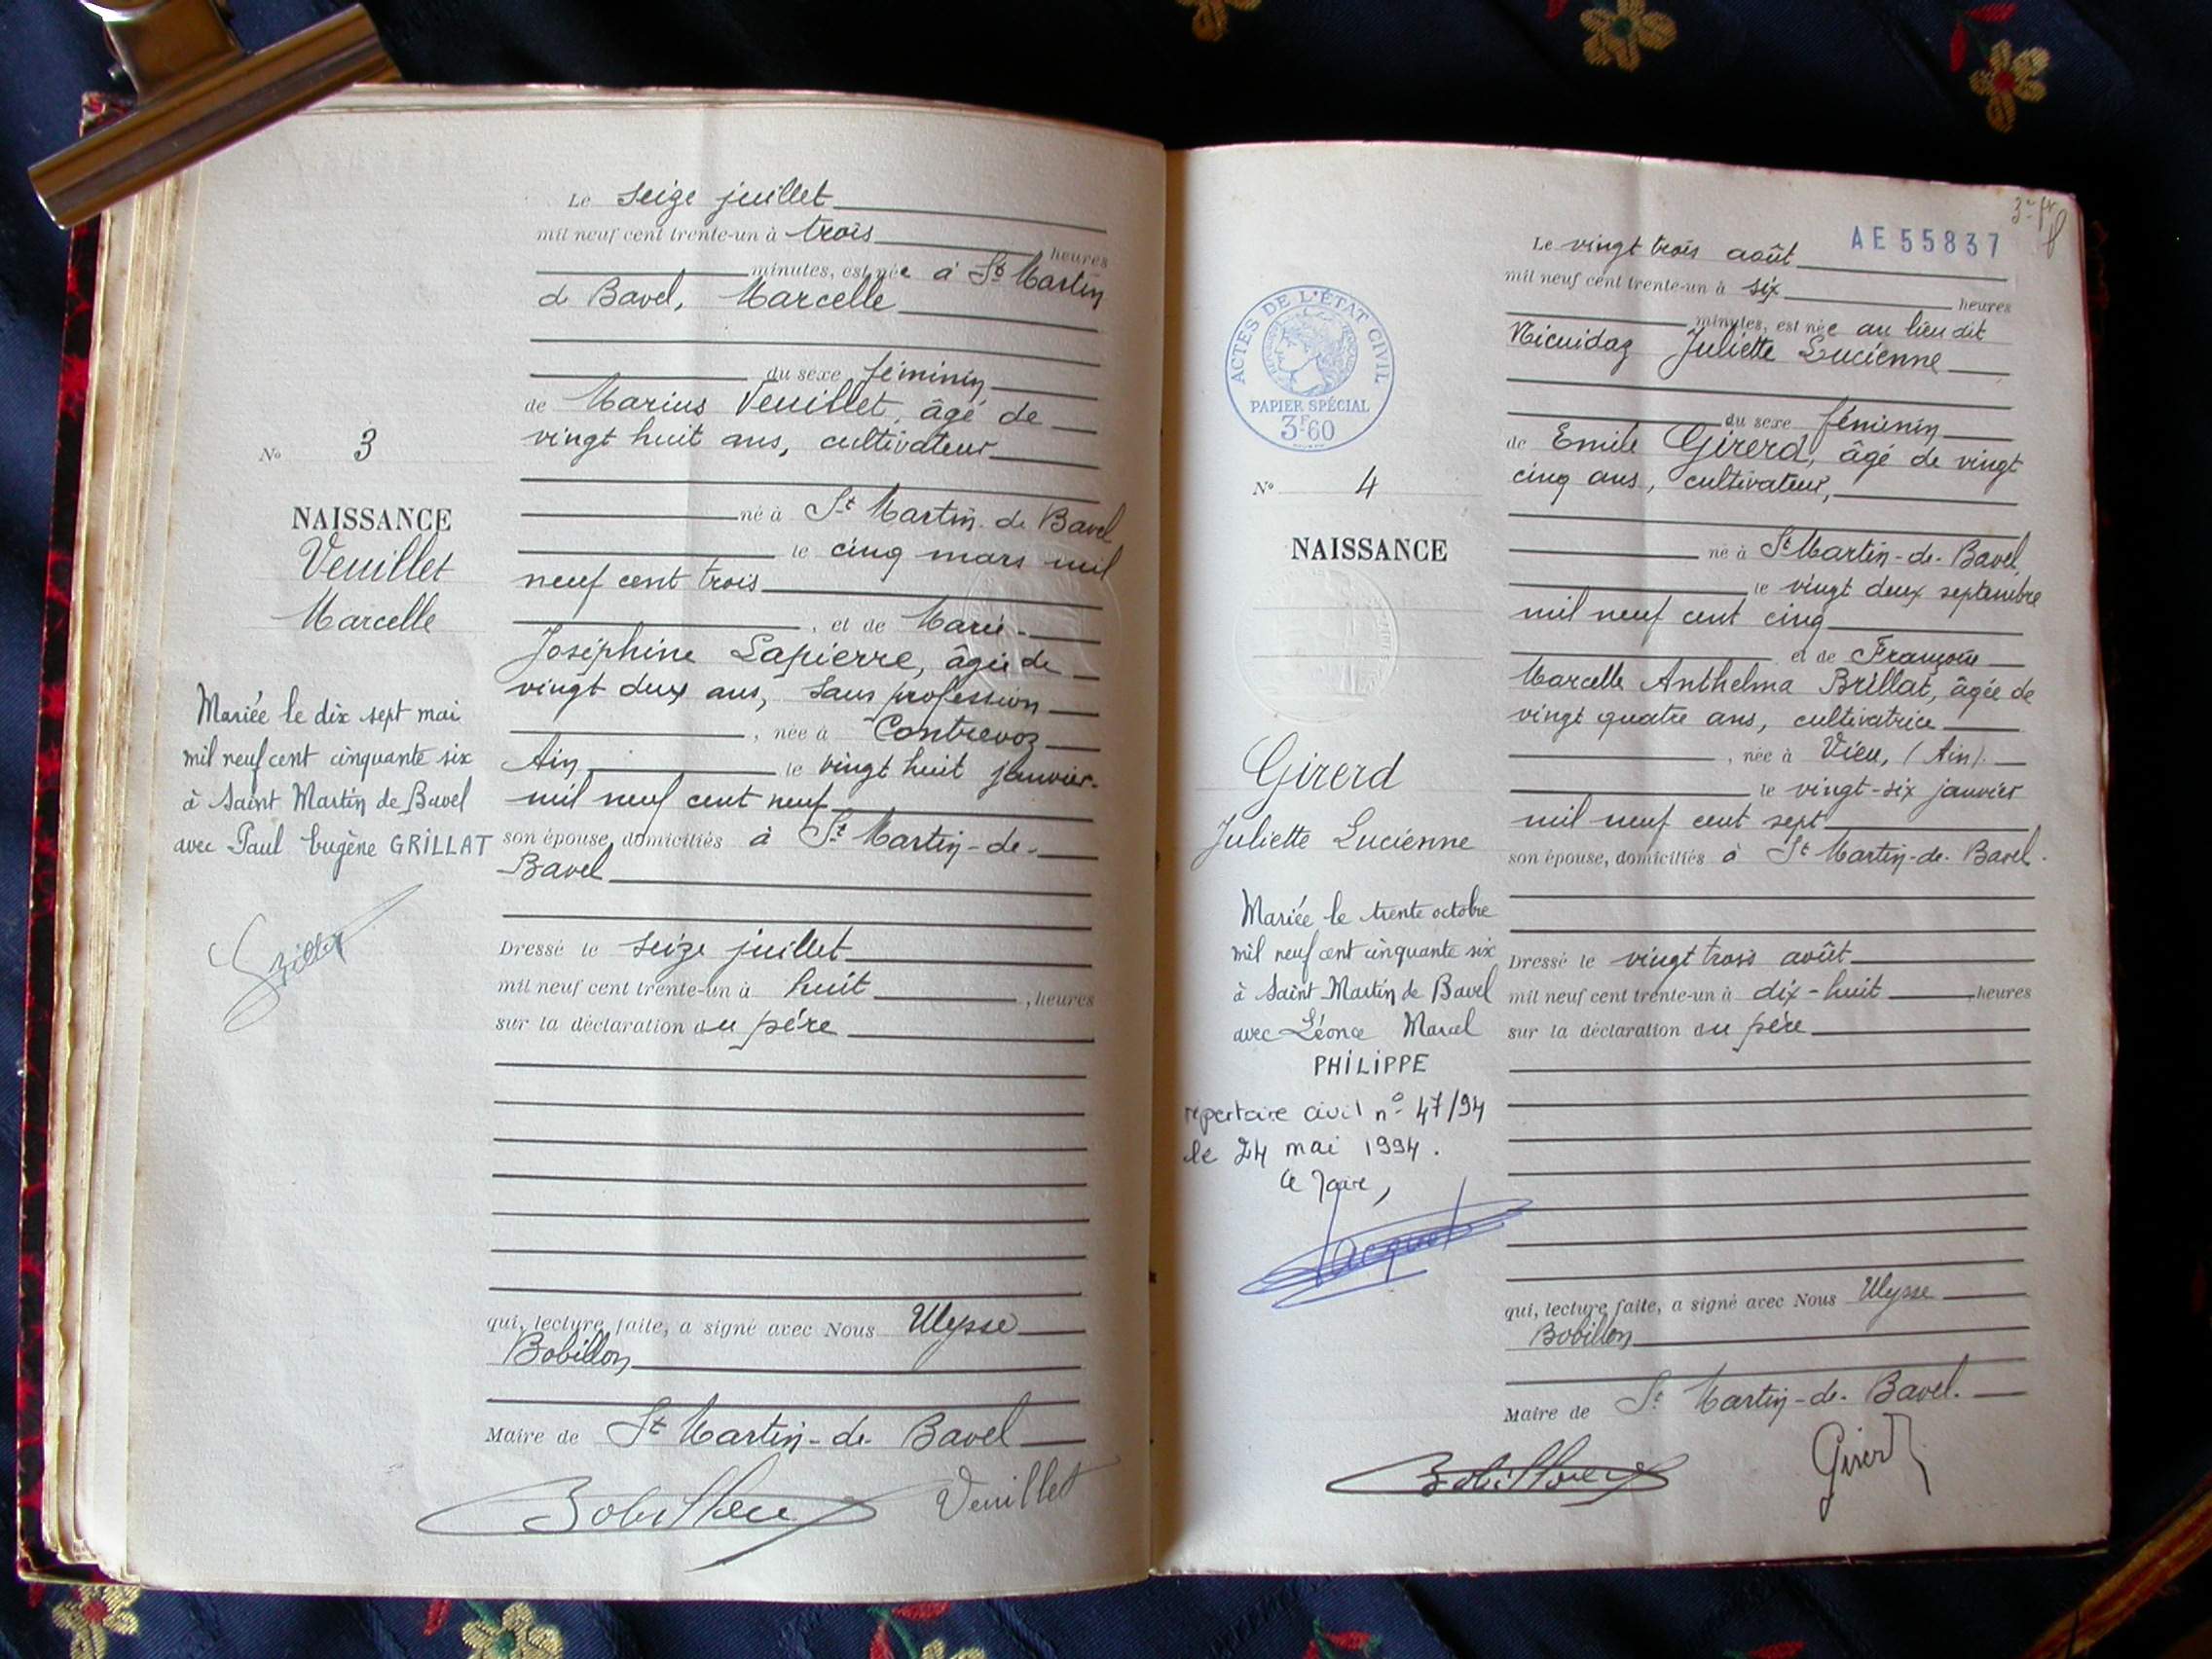 Le seize juillet
mil neuf cent trente-un à trois heures
minutes, est née à St Martin
de Bavel, Marcelle
du sexe féminin
de Marius Veuillet, âgé de
vingt huit ans, cultivateur
né à St Martin-de Bavel
le cinq mars mil
neuf cent trois
, et de Marie-
Joséphine Lapierre, âgée de
vingt deux ans, sans profession
, née à Contrevoz
Ain le vingt huit janvier
mil neuf cent neuf
son épouse, domiciliés à St Martin-de-
Bavel
Dressé le seize juillet
mil neuf cent trente-un à huit , heures
sur la déclaration du père
qui, lecture faite, a signé avec Nous Ulysse
Bobillon
Maire de St Martin-de-Bavel
Veuillet
No 3
NAISSANCE
Veuillet
Marcelle
Mariée le dix sept mai
mil neuf cent cinquante six
à Saint Martin de Bavel
avec Paul Eugène GRILLAT
AE 55837
Le vingt trois août
mil neuf cent trente-un à six heures
minutes, est née au lieu dit
Juliette Lucienne
du sexe féminin
de Emile Girerd, âgé de vingt
cinq ans, cultivateur,
né à St Martin-de-Bavel,
le vingt deux septembre
mil neuf cent cinq
et de Françoise
Marcelle Anthelma Brillat, âgée de
vingt quatre ans, cultivatrice
, née à Vieu, (Ain).
le vingt-six janvier
mil neuf cent sept
son épouse, domiciliés à St Martin-de-Bavel.
Dressé le vingt trois août
mil neuf cent trente-un à dix-huit heures
sur la déclaration du père
qui, lecture faite, a signé avec Nous Ulysse
Bobillon
Maire de St Martin-de-Bavel.
Girerd
ACTES DE L'ÉTAT CIVIL
PAPIER SPÉCIAL
3F60
No 4
NAISSANCE
Girerd
Juliette Lucienne
Mariée le trente octobre
mil neuf cent cinquante six
à Saint Martin de Bavel
avec Léonce Marcel
PHILIPPE
répertoire civil no 47/94
le 24 mai 1994.
Le Maire,